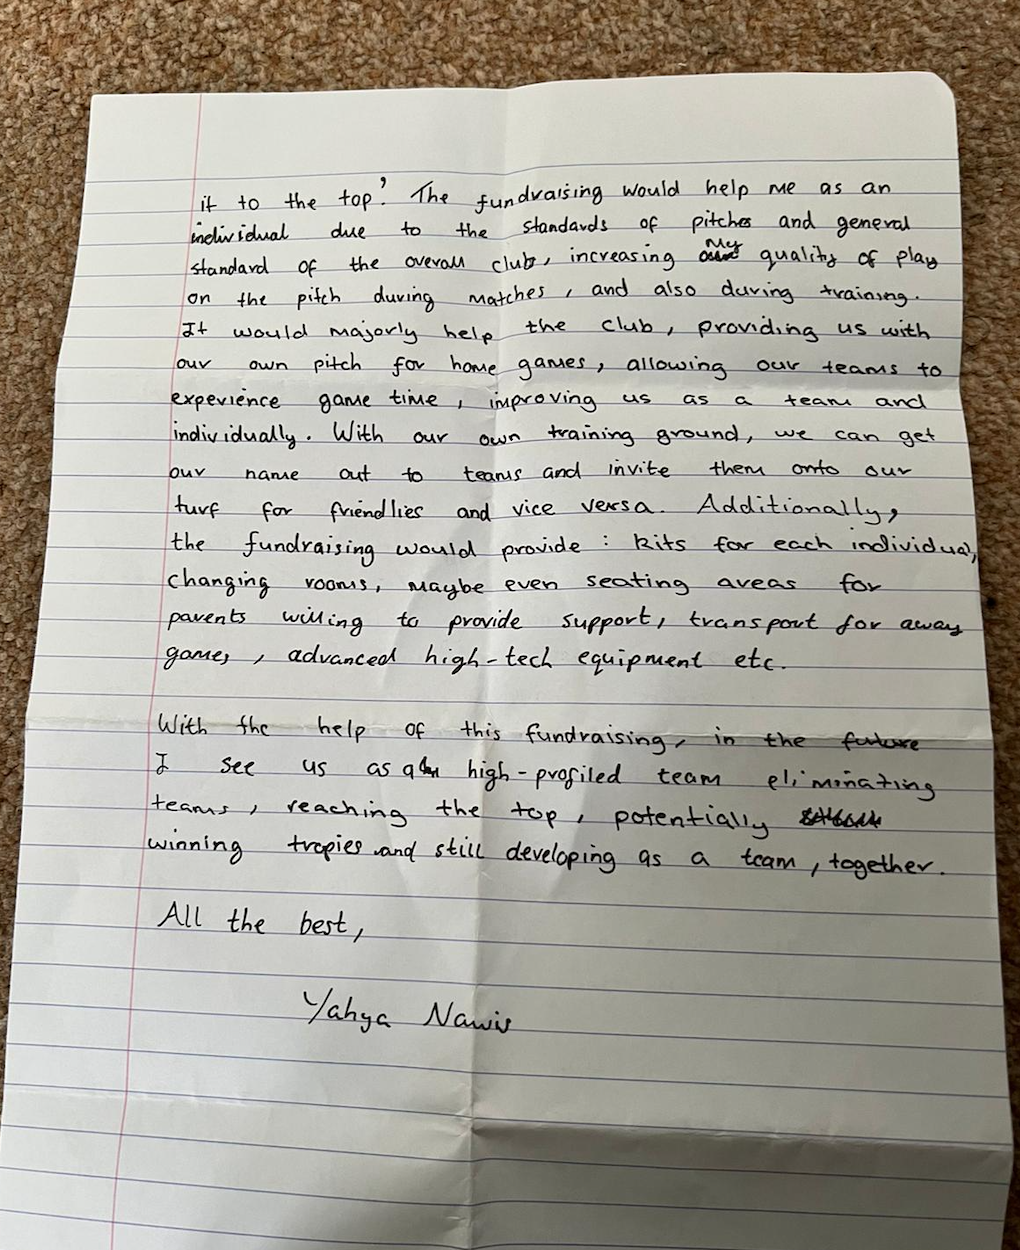 it to the top'. The fundraising would help me as an
individual due to the standards of pitches and general
standard of the overall club, increasing my quality of play
on the pitch during matches, and also during training.
It would majorly help the club, providing us with
our own pitch for home games, allowing our teams to
experience game time, improving us as a team and
individually. With our own training ground, we can get
our name out to teams and invite them onto our
turf for friendlies and vice versa. Additionally,
the fundraising would provide: kits for each individual,
changing rooms, maybe even seating areas for
parents willing to provide support, transport for away
games, advanced high-tech equipment etc.
With the help of this fundraising, in the future
I see us as a high-profiled team eliminating
teams, reaching the top, potentially
winning tropies and still developing as a team, together.
All the best,
Yahya